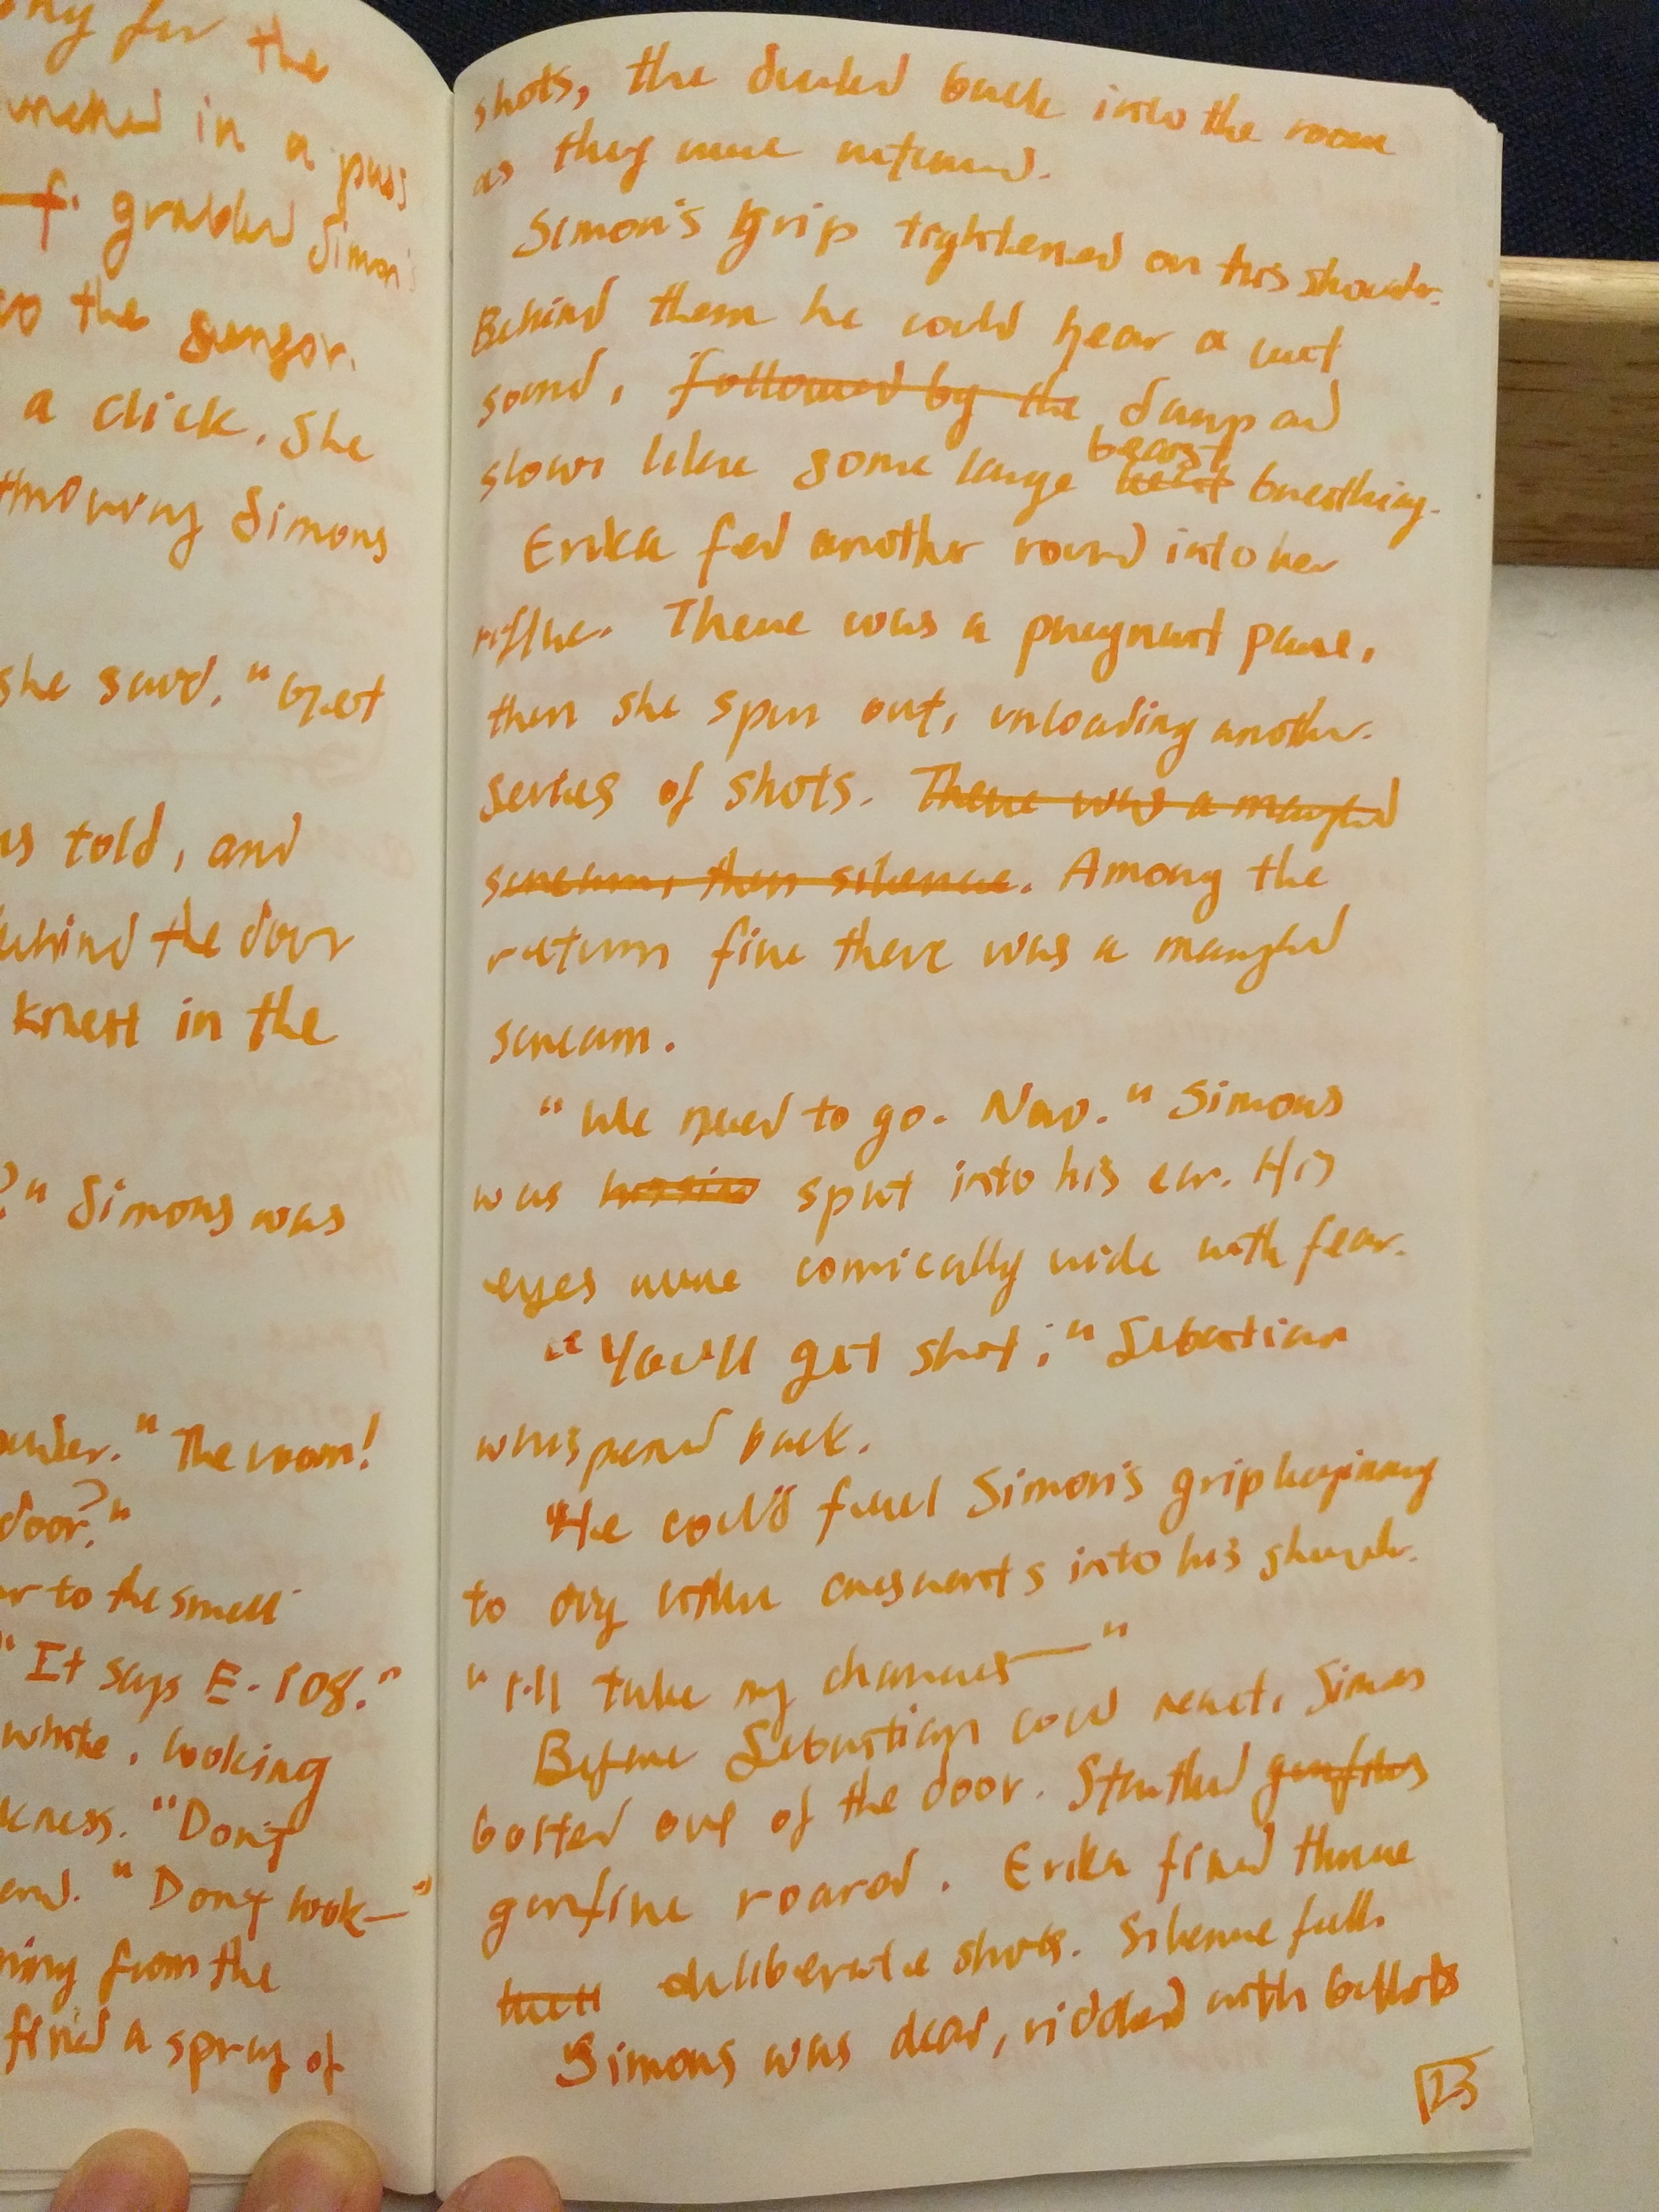 ny for the
in a pass
f. grabbed Simon's
to the sensor.
a click. She
throwing Simons
she said. "Get
as told, and
behind the door
knelt in the
?" Simons was
"The room!
door?"
to the smell
"It says E-108."
white, looking
kness. "Don't
"Don't look—"
ning from the
fired a spray of
shots, the ducked back into the room
as they were returned.
Simon's grip tightened on his shoulder.
Behind them he could hear a wet
sound, followed by the damp and
slow like some large beast breathing.
Erika fed another round into her
rifle. There was a pregnant pause,
then she spun out, unloading another
series of shots. There was a mangled
scream, then silence. Among the
return fire there was a mangled
scream.
"We need to go. Now." Simons
was spat into his ear. His
eyes were comically wide with fear.
"You'll get shot," Sebastian
whispered back.
He could feel Simon's grip beginning
to dig into his shoulder.
"I'll take my chances—"
Before Sebastian could react, Simons
bolted out of the door. Startled gunfire
gunfire roared. Erika fired three
deliberate shots. Silence fell.
Simons was dead, riddled with bullets
23